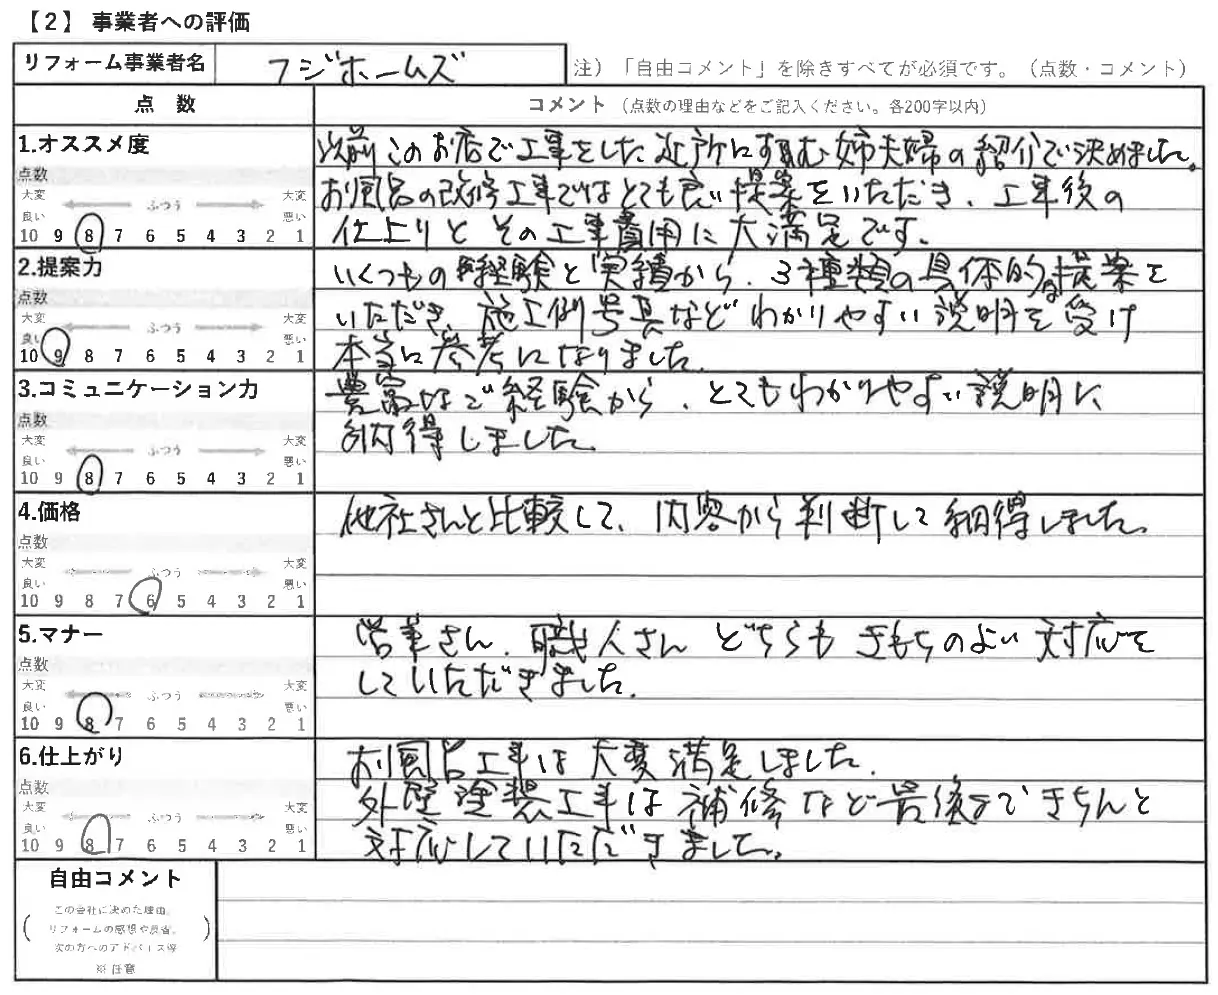 【2】 事業者への評価
リフォーム事業者名 フジホームズ 注）「自由コメント」を除きすべてが必須です。（点数・コメント）
点 数 コメント（点数の理由などをご記入ください。各200字以内）
1.オススメ度
点数
大変 良い ふつう 大変 悪い
10 9 8 7 6 5 4 3 2 1
以前このお店で工事をした近所にすむ姉夫婦の紹介で決めました。
お風呂の改修工事ではとても良い提案をいただき、工事後の
仕上りとその工事費用に大満足です。
2.提案力
点数
大変 良い ふつう 大変 悪い
10 9 8 7 6 5 4 3 2 1
いくつもの経験と実績から、3種類の具体的な提案を
いただき 施工例写真など わかりやすい説明を受け
本当に参考になりました。
3.コミュニケーション力
点数
大変 良い ふつう 大変 悪い
10 9 8 7 6 5 4 3 2 1
豊富なご経験から、とてもわかりやすい説明に
納得しました。
4.価格
点数
大変 良い ふつう 大変 悪い
10 9 8 7 6 5 4 3 2 1
他社さんと比較して、内容から判断して納得しました。
5.マナー
点数
大変 良い ふつう 大変 悪い
10 9 8 7 6 5 4 3 2 1
営業さん、職人さん どちらも きもちのよい 対応を
していただきました。
6.仕上がり
点数
大変 良い ふつう 大変 悪い
10 9 8 7 6 5 4 3 2 1
お風呂工事は大変満足しました。
外壁塗装工事は補修など最後まできちんと
対応していただきました。
自由コメント
この会社に決めた理由、
リフォームの感想や反省、
次の方へのアドバイス等
※任意